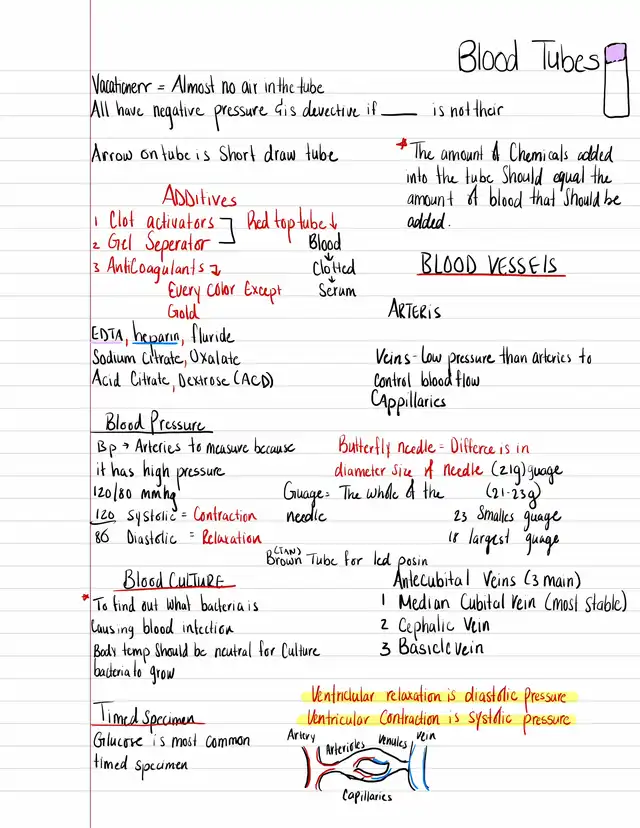 Blood Tubes
Vacationerr = Almost no air in the tube
All have negative pressure & is devective if ____ is not their
Arrow on tube is Short draw tube
* The amount of Chemicals added
into the tube Should equal the
amount of blood that should be
added.
ADDITIVES
1 Clot activators
2 Gel Seperator
Red top tube ↓
Blood
↓
Clotted
↓
Serum
3 AntiCoagulants ↴
Every color Except
Gold
EDTA, heparin, fluride
Sodium Citrate, Oxalate
Acid Citrate, Dextrose (ACD)
BLOOD VESSELS
ARTERIS
Veins - Low pressure than arteries to
control blood flow
Cappillaries
Blood Pressure
Bp → Arteries to measure because
it has high pressure
120/80 mmhg
120 Systolic = Contraction
80 Diastolic = Relaxation
Butterfly needle = Differce is in
diameter size of needle (21g) guage
Guage = The whole of the
needle
(21-23g)
23 Smalles guage
18 largest guage
(TAN)
Brown Tube for led posin
Blood Culture
* To find out what bacteria is
Causing blood infection
Body temp Should be neutral for Culture
bacteria to grow
Antecubital Veins (3 main)
1 Median Cubital Vein (most stable)
2 Cephalic Vein
3 Basicle vein
Ventriclular relaxation is diastolic pressure
Ventricular Contraction is systolic pressure
Timed Specimen
Glucose is most common
timed specimen
Artery
Arterioles
Venules
Vein
Capillaries